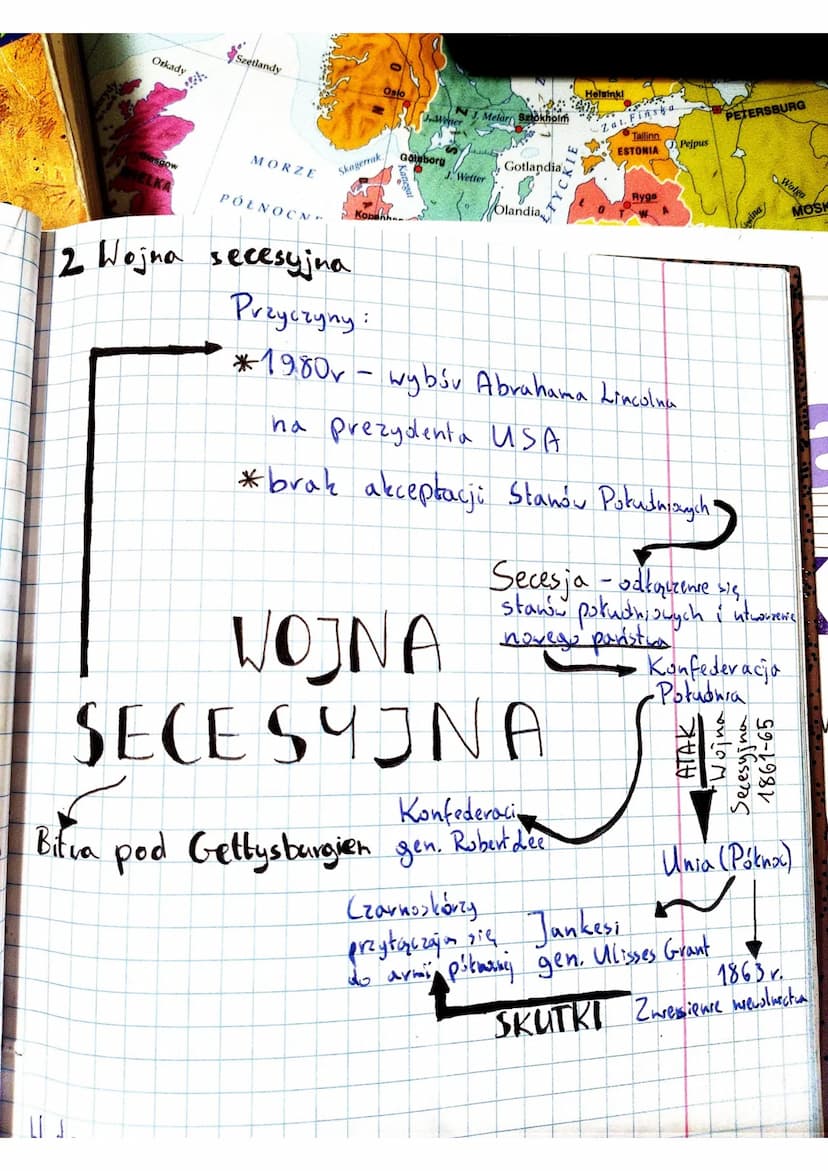 Orkady
Szetlandy
Oslo
Helsinki
J. Melar
Sztokholm
Zat. Fińska
PETERSBURG
Tallinn
ESTONIA
J. Pejpus
MORZE
Skagerrak
Göteborg
J. Wetter
Gotlandia
Wołga
PÓŁNOCN
Kattegat
Olandia
Ryga
ŁOTWA
MOSK
2 Wojna secesyjna
Przyczyny:
*1980r – wybór Abrahama Lincolna
na prezydenta USA
*brak akceptacji Stanów Południowych
Secesja – odłączenie się
stanów południowych i utworzenie
nowego państwa
Konfederacja
Południa
WOJNA
SECESYJNA
ATAK
Wojna
Secesyjna
1861-65
Konfederaci
Bitwa pod Gettysburgien gen. Robert Lee
Unia (Północ)
Czarnoskórzy
przyłączają się
do armii północnej
Jankesi
gen. Ulisses Grant
1863 r.
Zniesienie niewolnictwa
SKUTKI